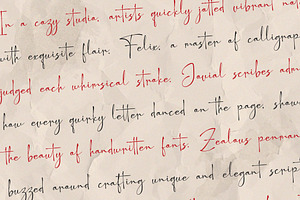 In a cozy studio, artists quickly jotted vibrant na
with exquisite flair. Felix, a master of calligrap
judged each whimsical stroke. Jovial scribes adm
how every quirky letter danced on the page, show
the beauty of handwritten fonts. Zealous penman
buzzed around crafting unique and elegant scrip